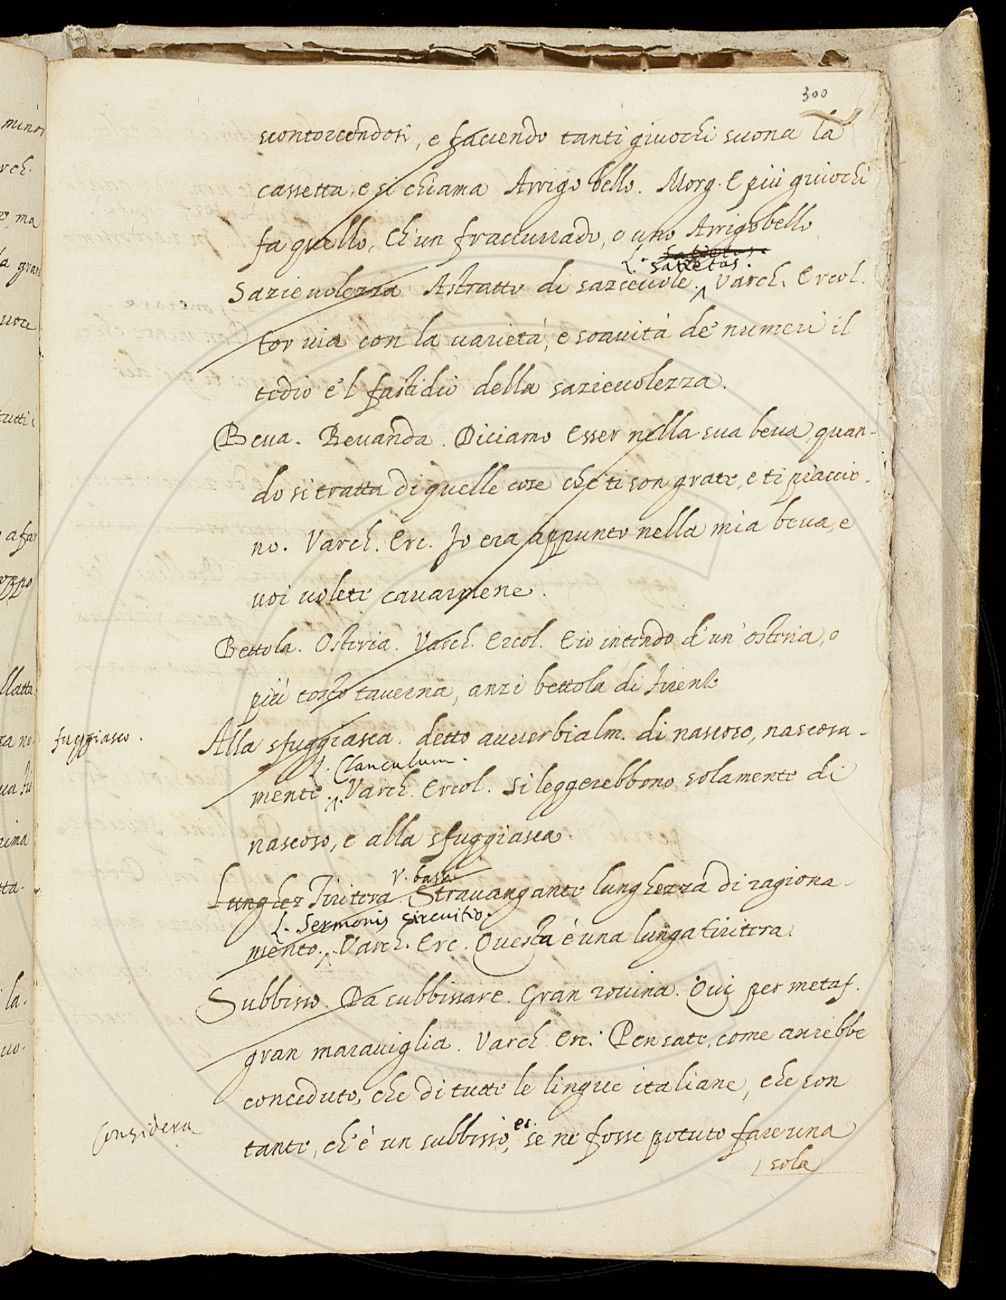 300
scontorcendosi, e facendo tanti giuochi suona la
cassetta, e si chiama Arrigo bello. Morg. E più giuochi
fa quello, ch'un fraccurrado, o uno Arrigobello
L. satietas.
Sazieuolezza Astratto di sazieuole. Varch. Ercol.
tor via con la uarietà, e soauità de' numeri il
tedio e 'l fastidio della sazieuolezza.
Beua. Beuanda. Diciamo Esser nella sua beua, quan-
do si tratta di quelle cose che ti son grate, e ti piaccio-
no. Varch. Erc. Io era appunto nella mia beua, e
uoi uolete cauarmene.
Bettola. Osteria. Varch. Ercol. Ciò intendo d'un'osteria, o
più tosto tauerna, anzi bettola di Firenze
fuggiasco. Alla sfuggiasca. detto auuerbialm. di nascoso, nascosa-
L. Clanculum.
mente. Varch. Ercol. si leggerebbono solamente di
nascoso, e alla sfuggiasca.
V. bassa
Lunghez Tiritera Strauangante lunghezza di ragiona-
L. Sermonis circuitio.
mento. Varch. Erc. Questa è una lunga tiritera.
Subbisso. Da subbissare. Gran rouina. Qui per metaf.
gran marauiglia. Varch. Erc. Pensate, come aurebbe
conceduto, che di tutte le lingue italiane, che son
Considera
tante, ch'è un subbisso, se ne fosse potuto fare una
sola